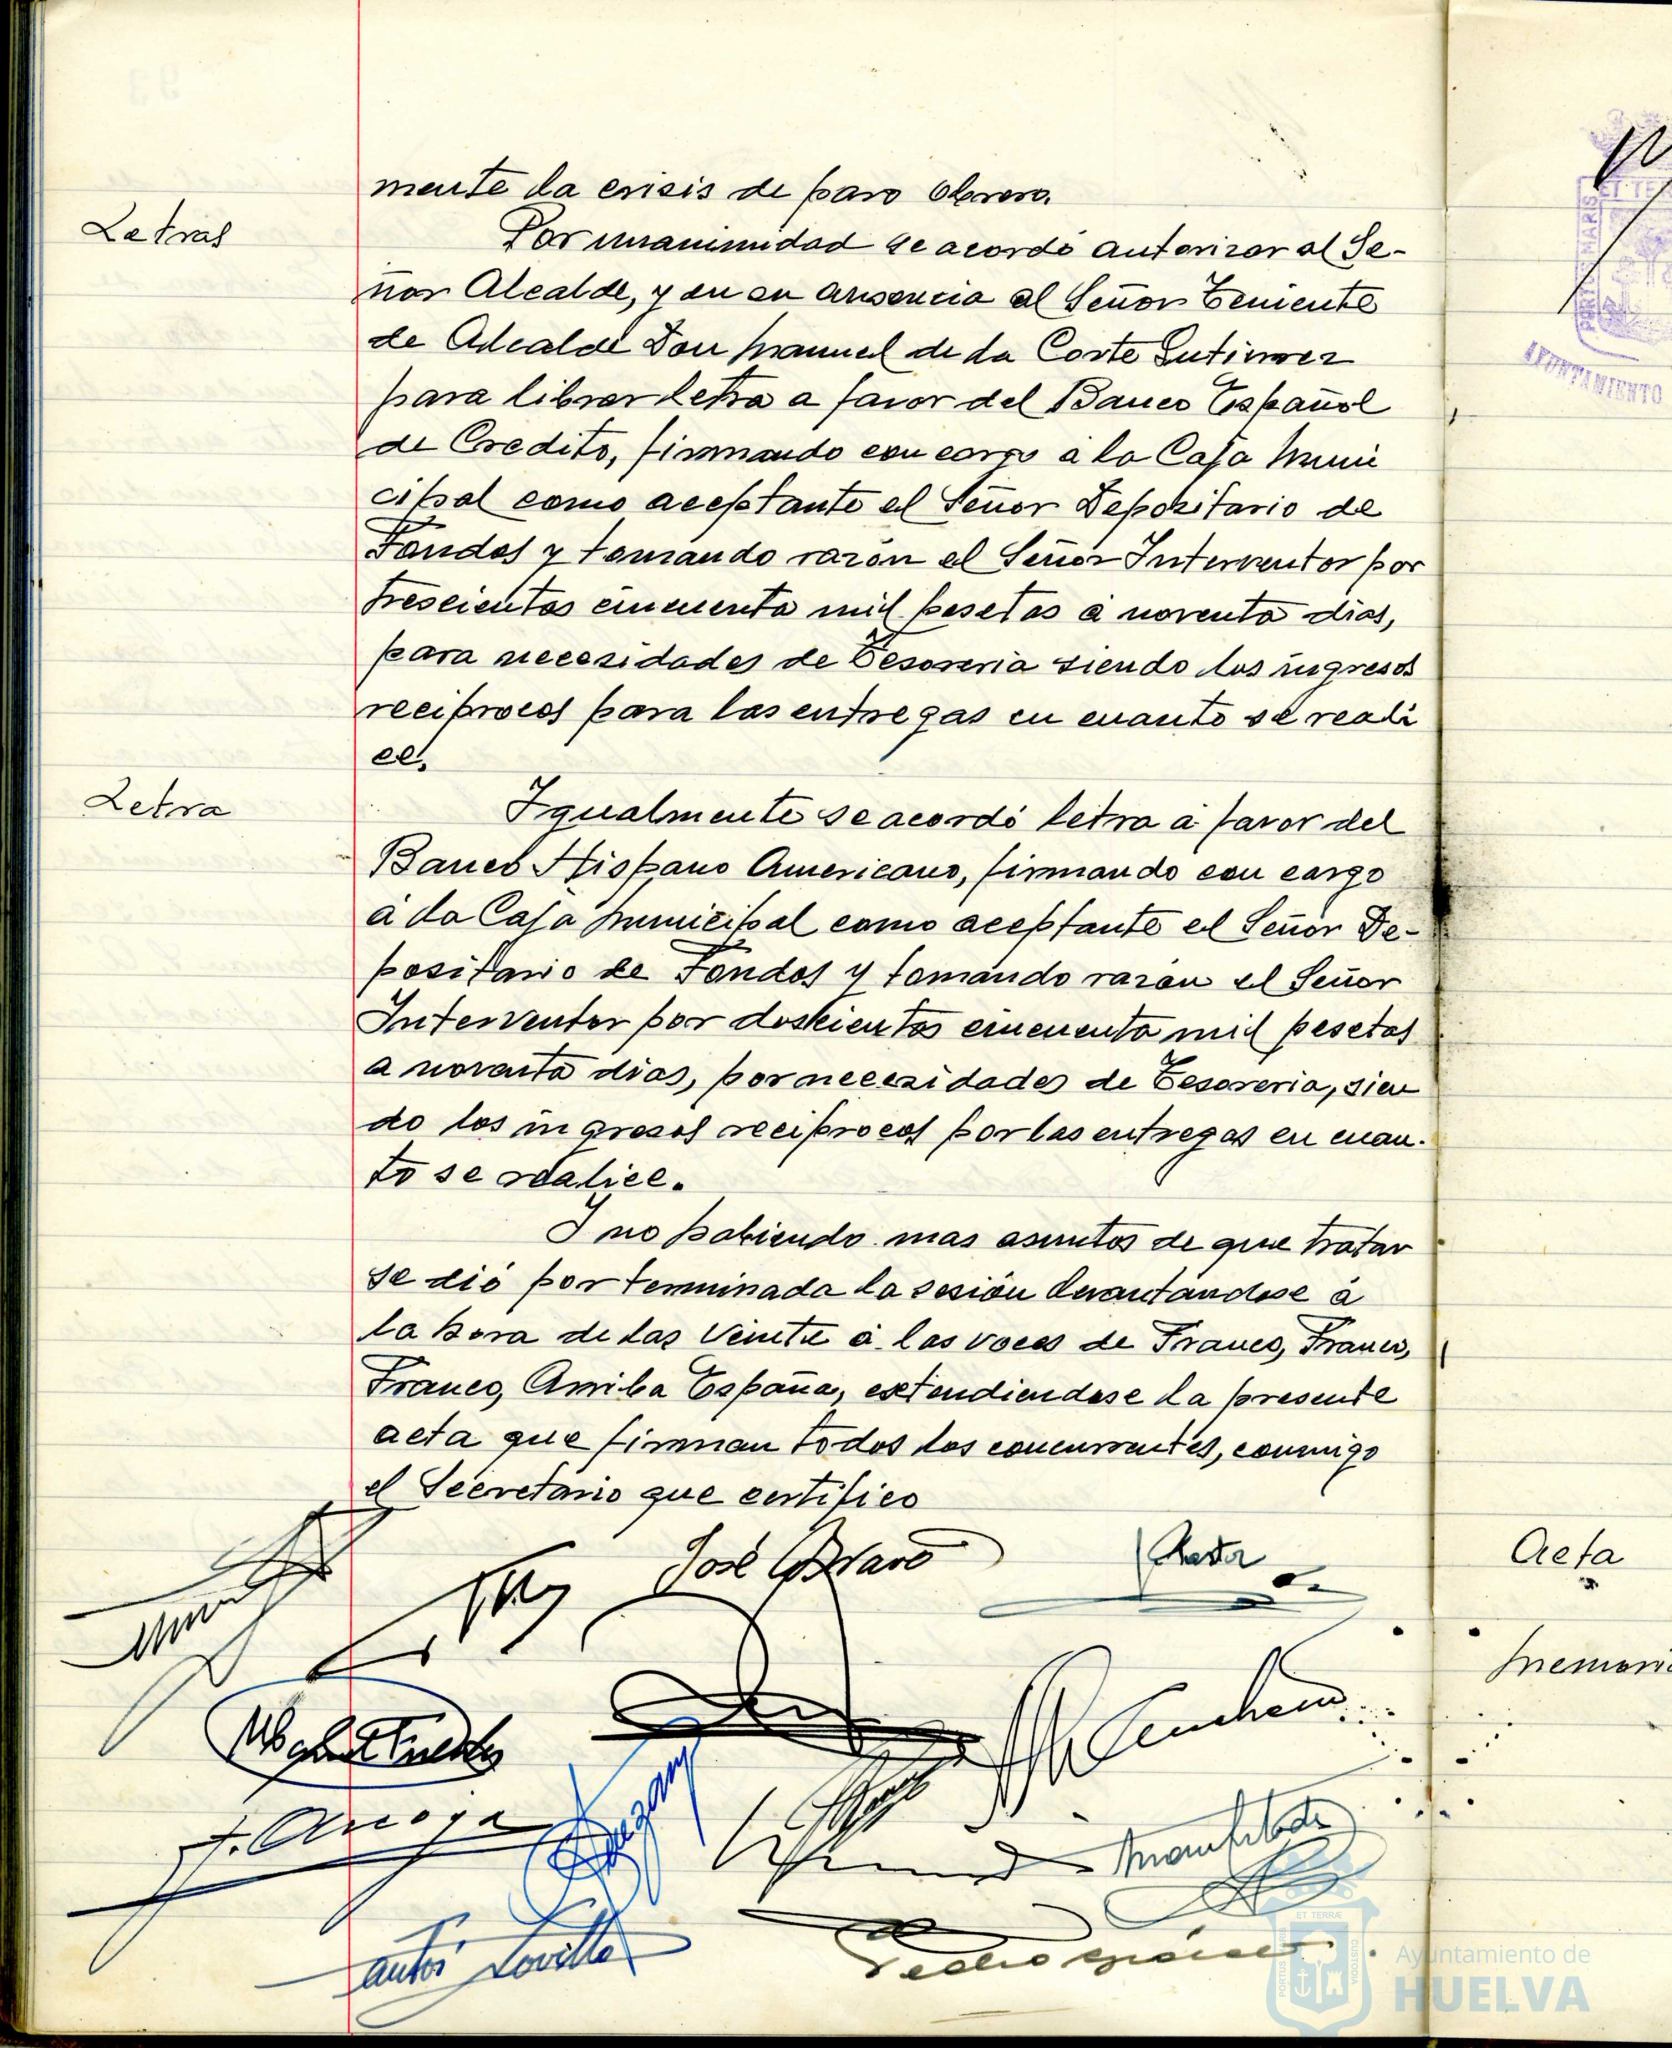 mente la crisis de paro obrero.
Letras
Por unanimidad se acordó autorizar al Se-
ñor Alcalde, y en su ausencia al Señor Teniente
de Alcalde Don Manuel de la Corte Gutierrez
para librar letra a favor del Banco Español
de Credito, firmando con cargo a la Caja Muni
cipal como aceptante el Señor Depositario de
Fondos y tomando razón el Señor Interventor por
trescientas cincuenta mil pesetas a noventa dias,
para necesidades de Tesoreria siendo los ingresos
reciprocos para las entregas en cuanto se reali
ce.
Letra
Igualmente se acordó letra a favor del
Banco Hispano Americano, firmando con cargo
a la Caja Municipal como aceptante el Señor De-
positario de Fondos y tomando razon el Señor
Interventor por doscientas cincuenta mil pesetas
a noventa dias, por necesidades de Tesoreria, sien
do los ingresos reciprocos por las entregas en cuan-
to se realice.
I no habiendo mas asuntos de que tratar
se dió por terminada la sesión levantándose á
la hora de las veinte a las voces de Franco, Franco,
Franco, Arriba España, extendiendose la presente
acta que firman todos los concurrentes, conmigo
el Secretario que certifico
José Bravo
J. Arroyo
Pedro
Acta
ET TERRÆ
PORTUS MARIS
CUSTODIA
AYUNTAMIENTO
Ayuntamiento de
HUELVA